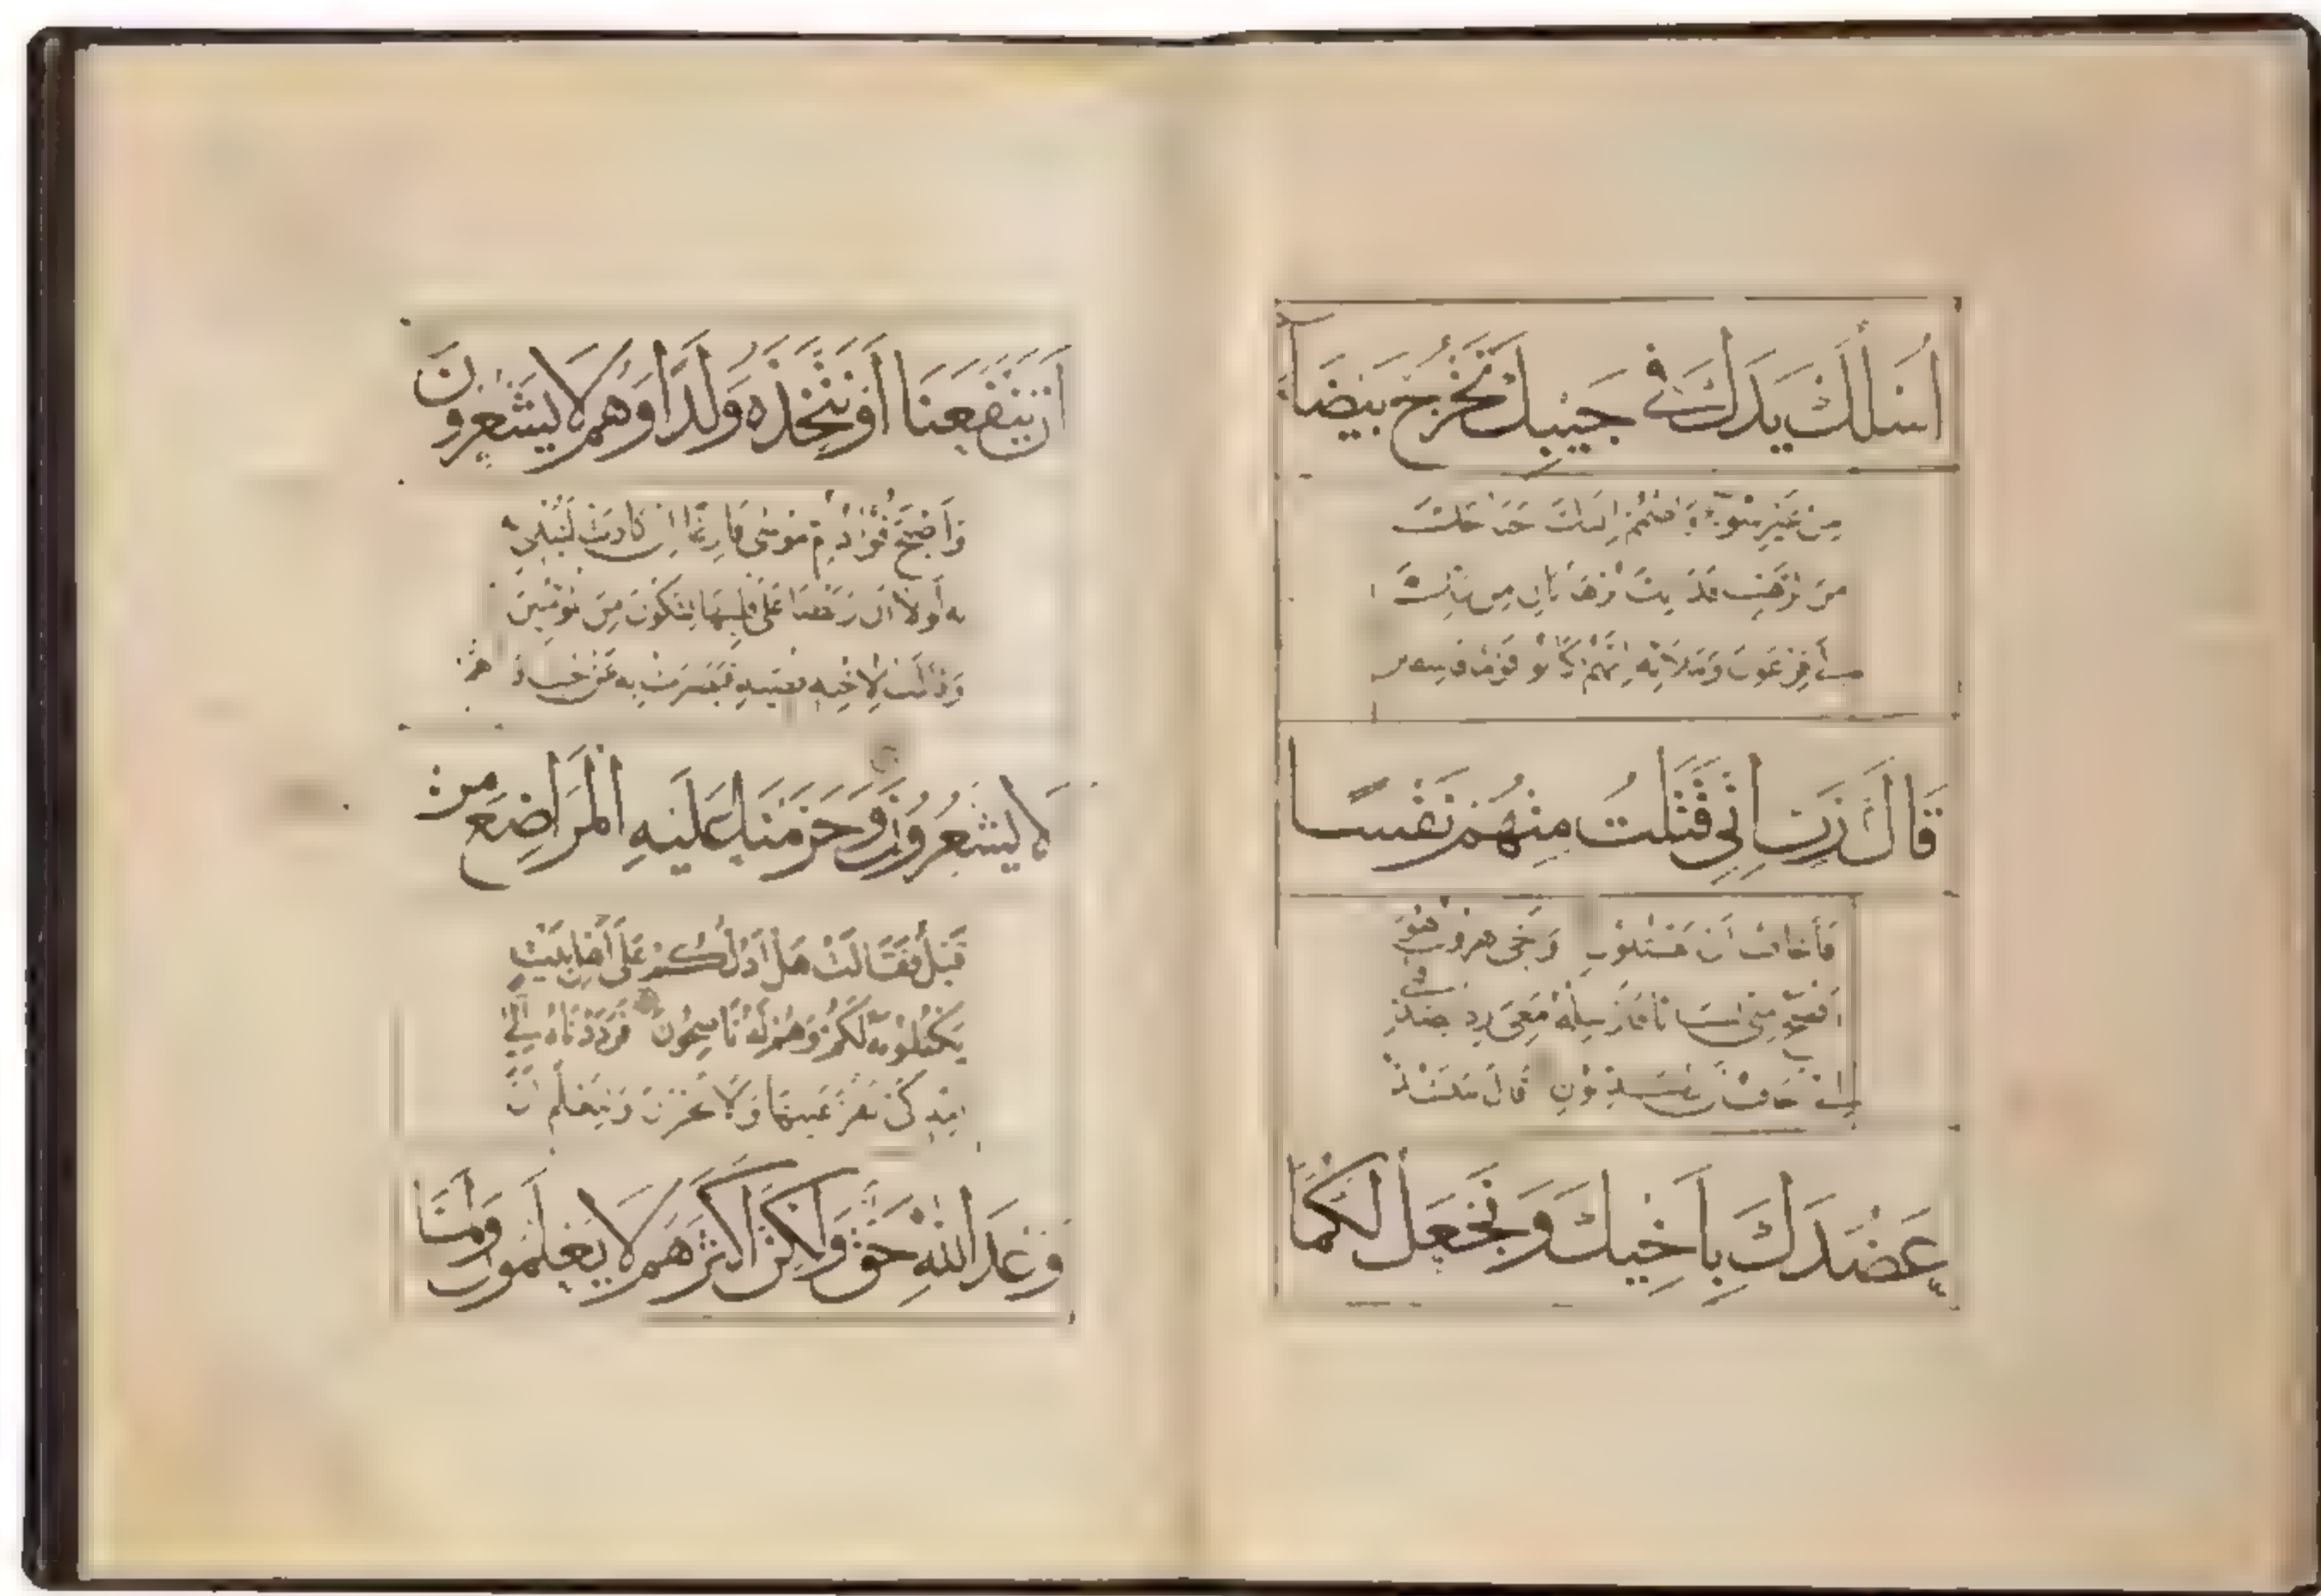 اسلك يدك في جيبك تخرج بيضاء
من غير سوء واضمم اليك جناحك
من الرهب فذانك برهانان من ربك
الى فرعون وملائه انهم كانوا قوما فاسقين
قال رب اني قتلت منهم نفسا
فأخاف ان يقتلون واخي هرون هو
افصح مني لسانا فارسله معي ردءا يصدقني
اني اخاف ان يكذبون قال سنشد
عضدك باخيك ونجعل لكما
ان ينفعنا او نتخذه ولدا وهم لا يشعرون
واصبح فؤاد ام موسى فارغا ان كادت لتبدي
به لولا ان ربطنا على قلبها لتكون من المؤمنين
وقالت لاخته قصيه فبصرت به عن جنب وهم
لا يشعرون وحرمنا عليه المراضع من
قبل فقالت هل ادلكم على اهل بيت
يكفلونه لكم وهم له ناصحون فرددناه الى
امه كي تقر عينها ولا تحزن ولتعلم ان
وعد الله حق ولكن اكثرهم لا يعلمون ولما